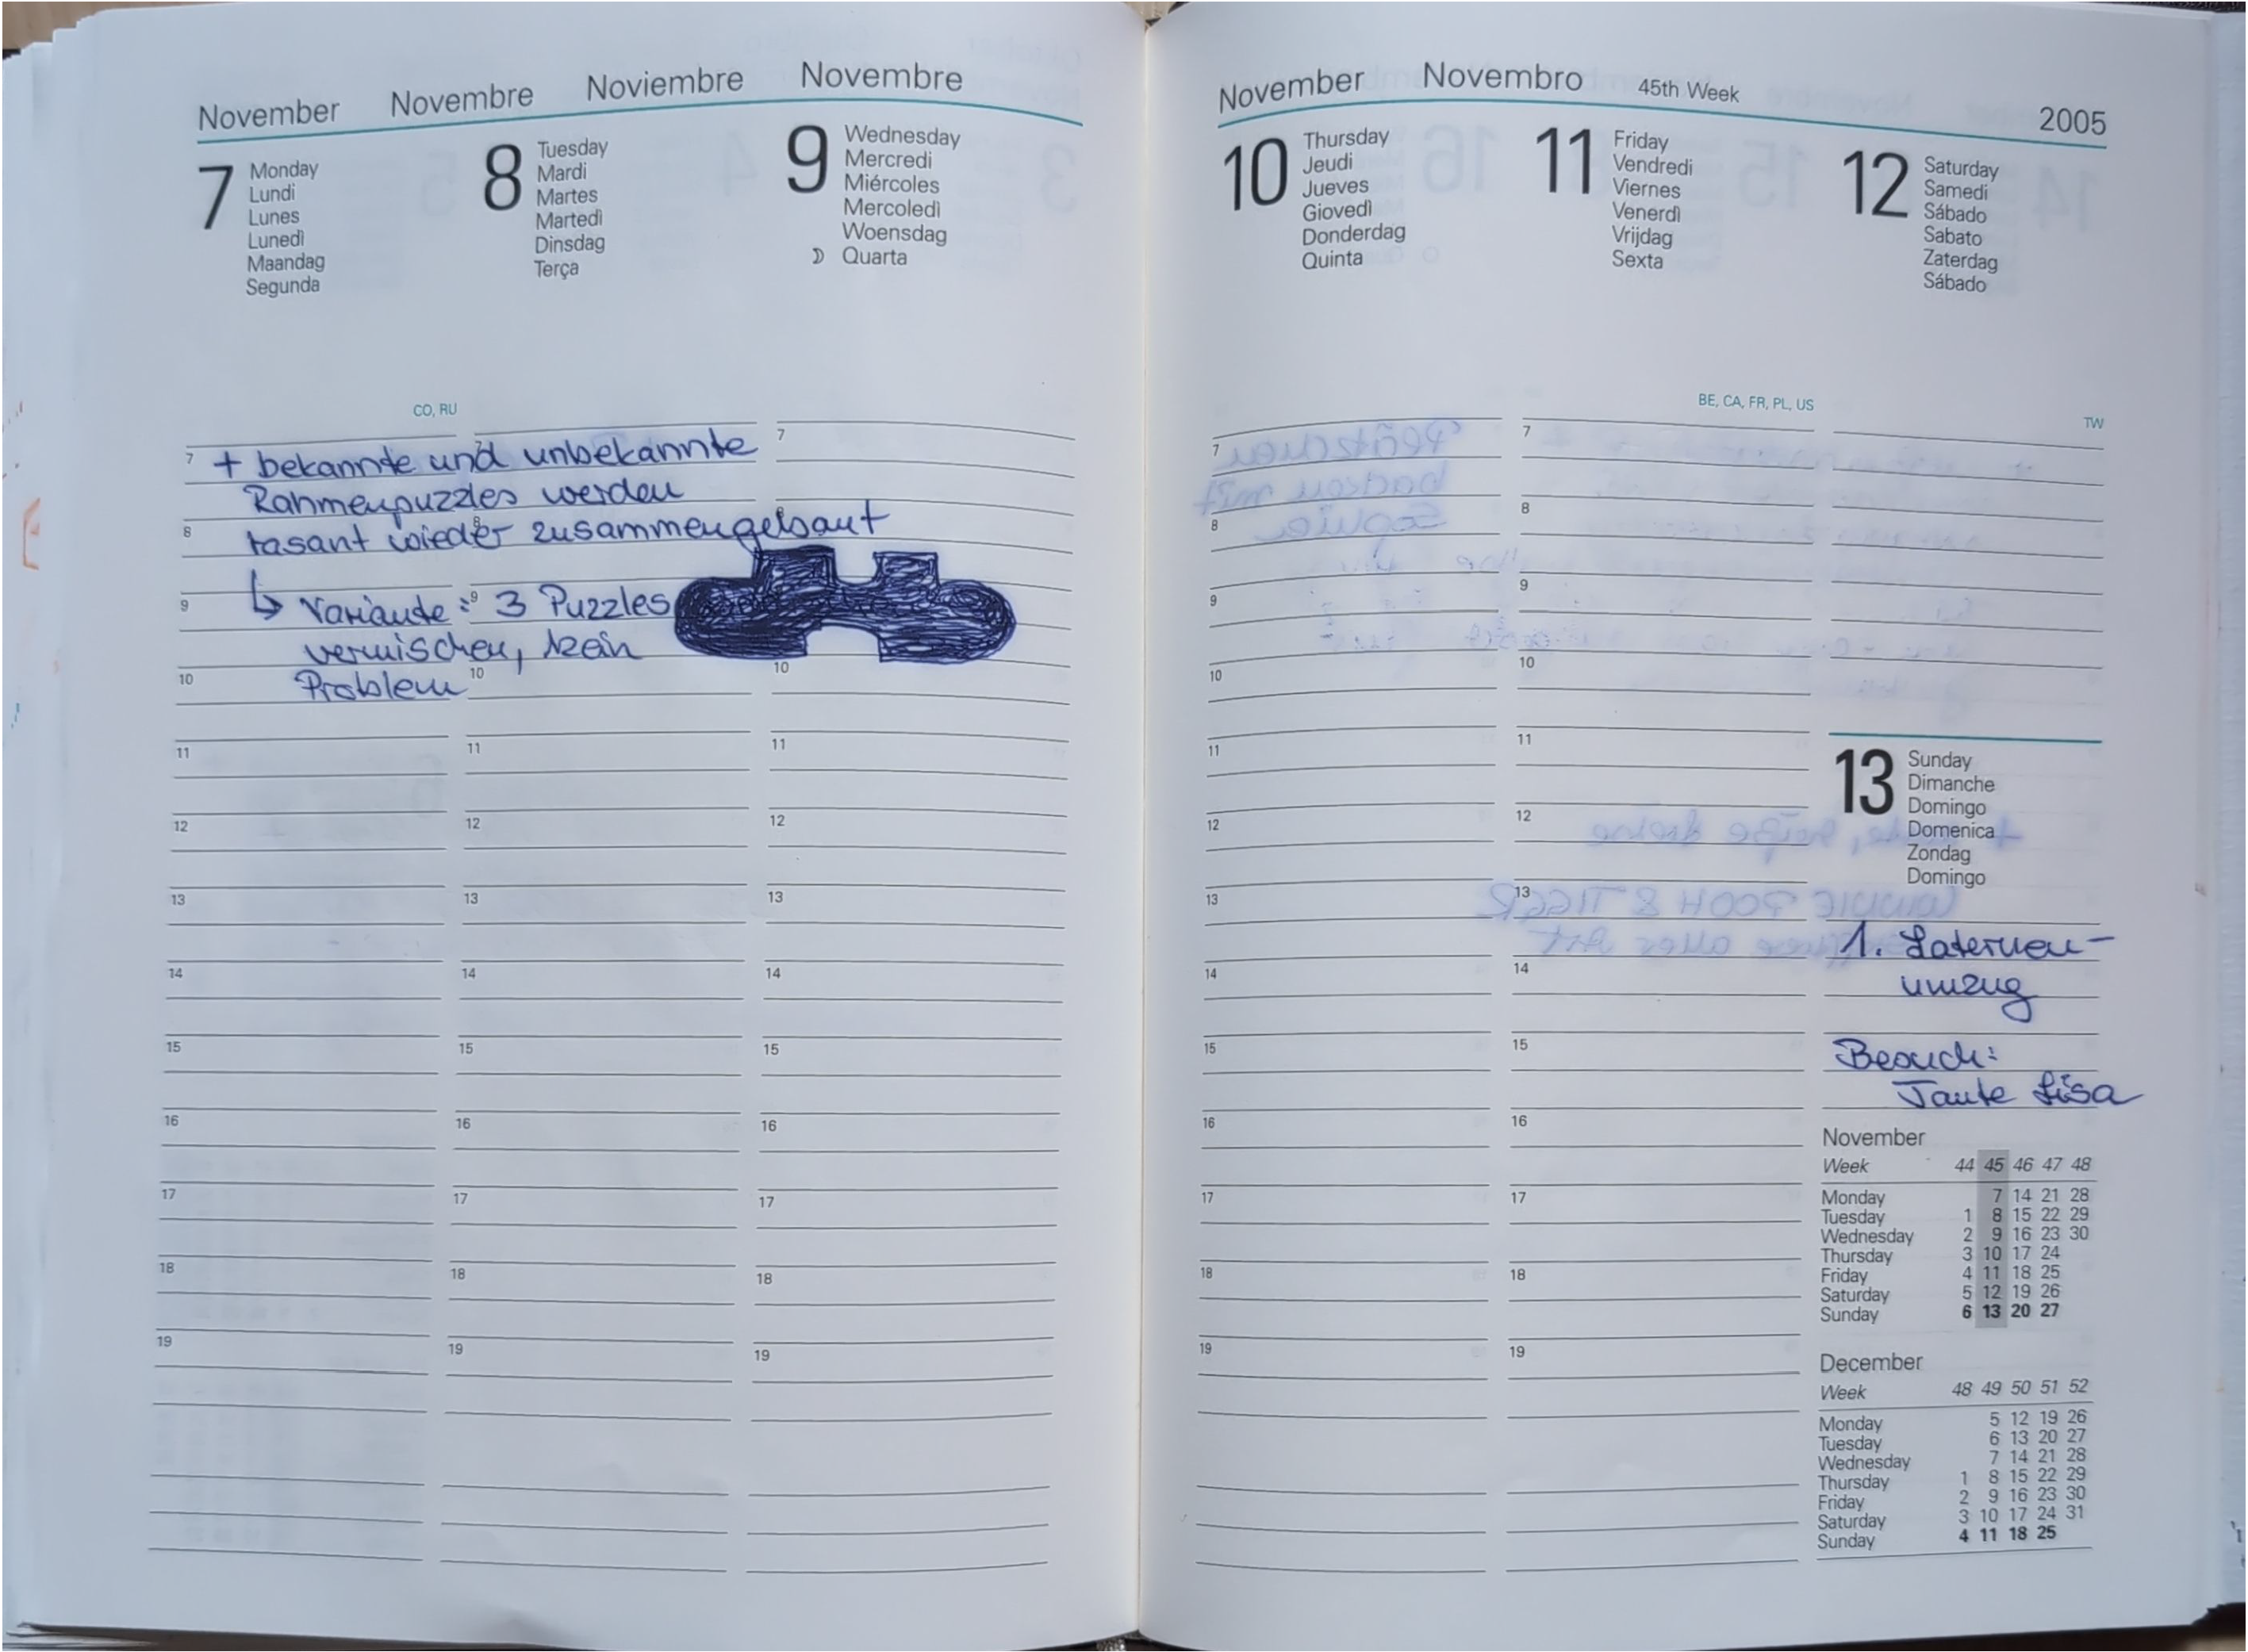 November Novembre Noviembre Novembre
7 Monday
Lundi
Lunes
Lunedì
Maandag
Segunda
8 Tuesday
Mardi
Martes
Martedì
Dinsdag
Terça
9 Wednesday
Mercredi
Miércoles
Mercoledì
Woensdag
Quarta
CO, RU
+ bekannte und unbekannte
Rahmenpuzzles werden
rasant wieder zusammengebaut
↳ Variante: 3 Puzzles
vermischen, kein
Problem
7 7 7
8 8 8
9 9
10 10 10
11 11 11
12 12 12
13 13 13
14 14 14
15 15 15
16 16 16
17 17 17
18 18 18
19 19 19
November Novembro 45th Week 2005
10 Thursday
Jeudi
Jueves
Giovedì
Donderdag
Quinta
11 Friday
Vendredi
Viernes
Venerdì
Vrijdag
Sexta
12 Saturday
Samedi
Sábado
Sabato
Zaterdag
Sábado
BE, CA, FR, PL, US
TW
7 7
8 8
9 9
10 10
11 11
12 12
13 13
14 14
15 15
16 16
17 17
18 18
19 19
13 Sunday
Dimanche
Domingo
Domenica
Zondag
Domingo
1. Laternen-
umzug
Besuch:
Tante Lisa
November
Week 44 45 46 47 48
Monday 7 14 21 28
Tuesday 1 8 15 22 29
Wednesday 2 9 16 23 30
Thursday 3 10 17 24
Friday 4 11 18 25
Saturday 5 12 19 26
Sunday 6 13 20 27
December
Week 48 49 50 51 52
Monday 5 12 19 26
Tuesday 6 13 20 27
Wednesday 7 14 21 28
Thursday 1 8 15 22 29
Friday 2 9 16 23 30
Saturday 3 10 17 24 31
Sunday 4 11 18 25